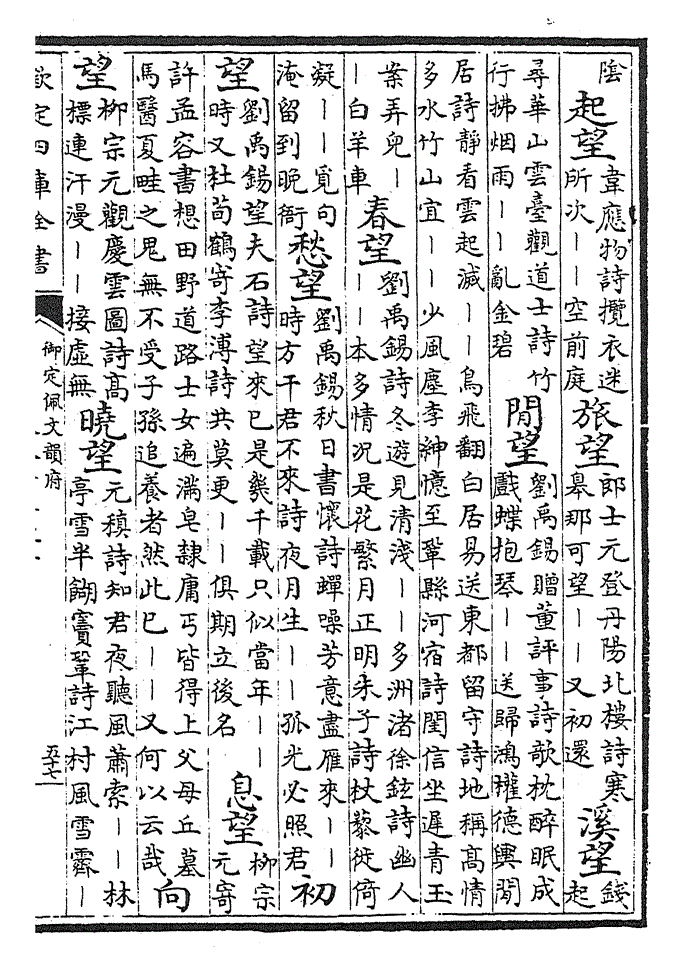 陰
起望
韋應物詩攬衣迷
所次丨丨空前庭
旅望
郎士元登丹陽北樓詩寒
皋那可望丨丨又初還
溪望
錢
起
尋華山雲臺觀道士詩竹
行拂烟雨丨丨亂金碧
閒望
劉禹錫贈董評事詩歌枕醉眠成
戲蝶抱琴丨丨送歸鴻權德輿閒
居詩靜看雲起滅丨丨鳥飛翻白居易送東都留守詩地稱高情
多水竹山宜丨丨少風塵李紳憶至鞏縣河宿詩閏信坐遲青玉
案弄兒丨
丨白羊車
春望
劉禹錫詩冬遊見清淺丨丨多洲渚徐鉉詩幽人
丨丨本多情况是花繁月正明朱子詩杖藜徙倚
凝丨丨覓句
淹留到晚衙
愁望
劉禹錫秋日書懷詩蟬噪芳意盡雁來丨丨
時方干君不來詩夜月生丨丨孤光必照君
初
望
劉禹錫望夫石詩望來已是幾千載只似當年丨丨
時又杜荀鶴寄李溥詩共莫更丨丨俱期立後名
息望
柳宗
元寄
許孟容書想田野道路士女遍滿皂隸庸丐皆得上父母丘墓
馬醫夏畦之鬼無不受子孫追養者然此已丨丨又何以云哉
向
望
柳宗元觀慶雲圖詩高
標連汗漫丨丨接虛無
曉望
元稹詩知君夜聽風蕭索丨丨林
亭雪半餬竇鞏詩江村風雪霽丨
欽定四庫全書
御定佩文韻府
五十七